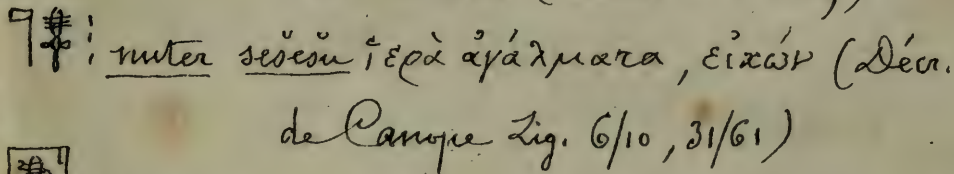 : nuter sešešu ἱερὰ ἀγάλματα, εἰκών (Décr.
de Canope Lig. 6/10, 31/61)